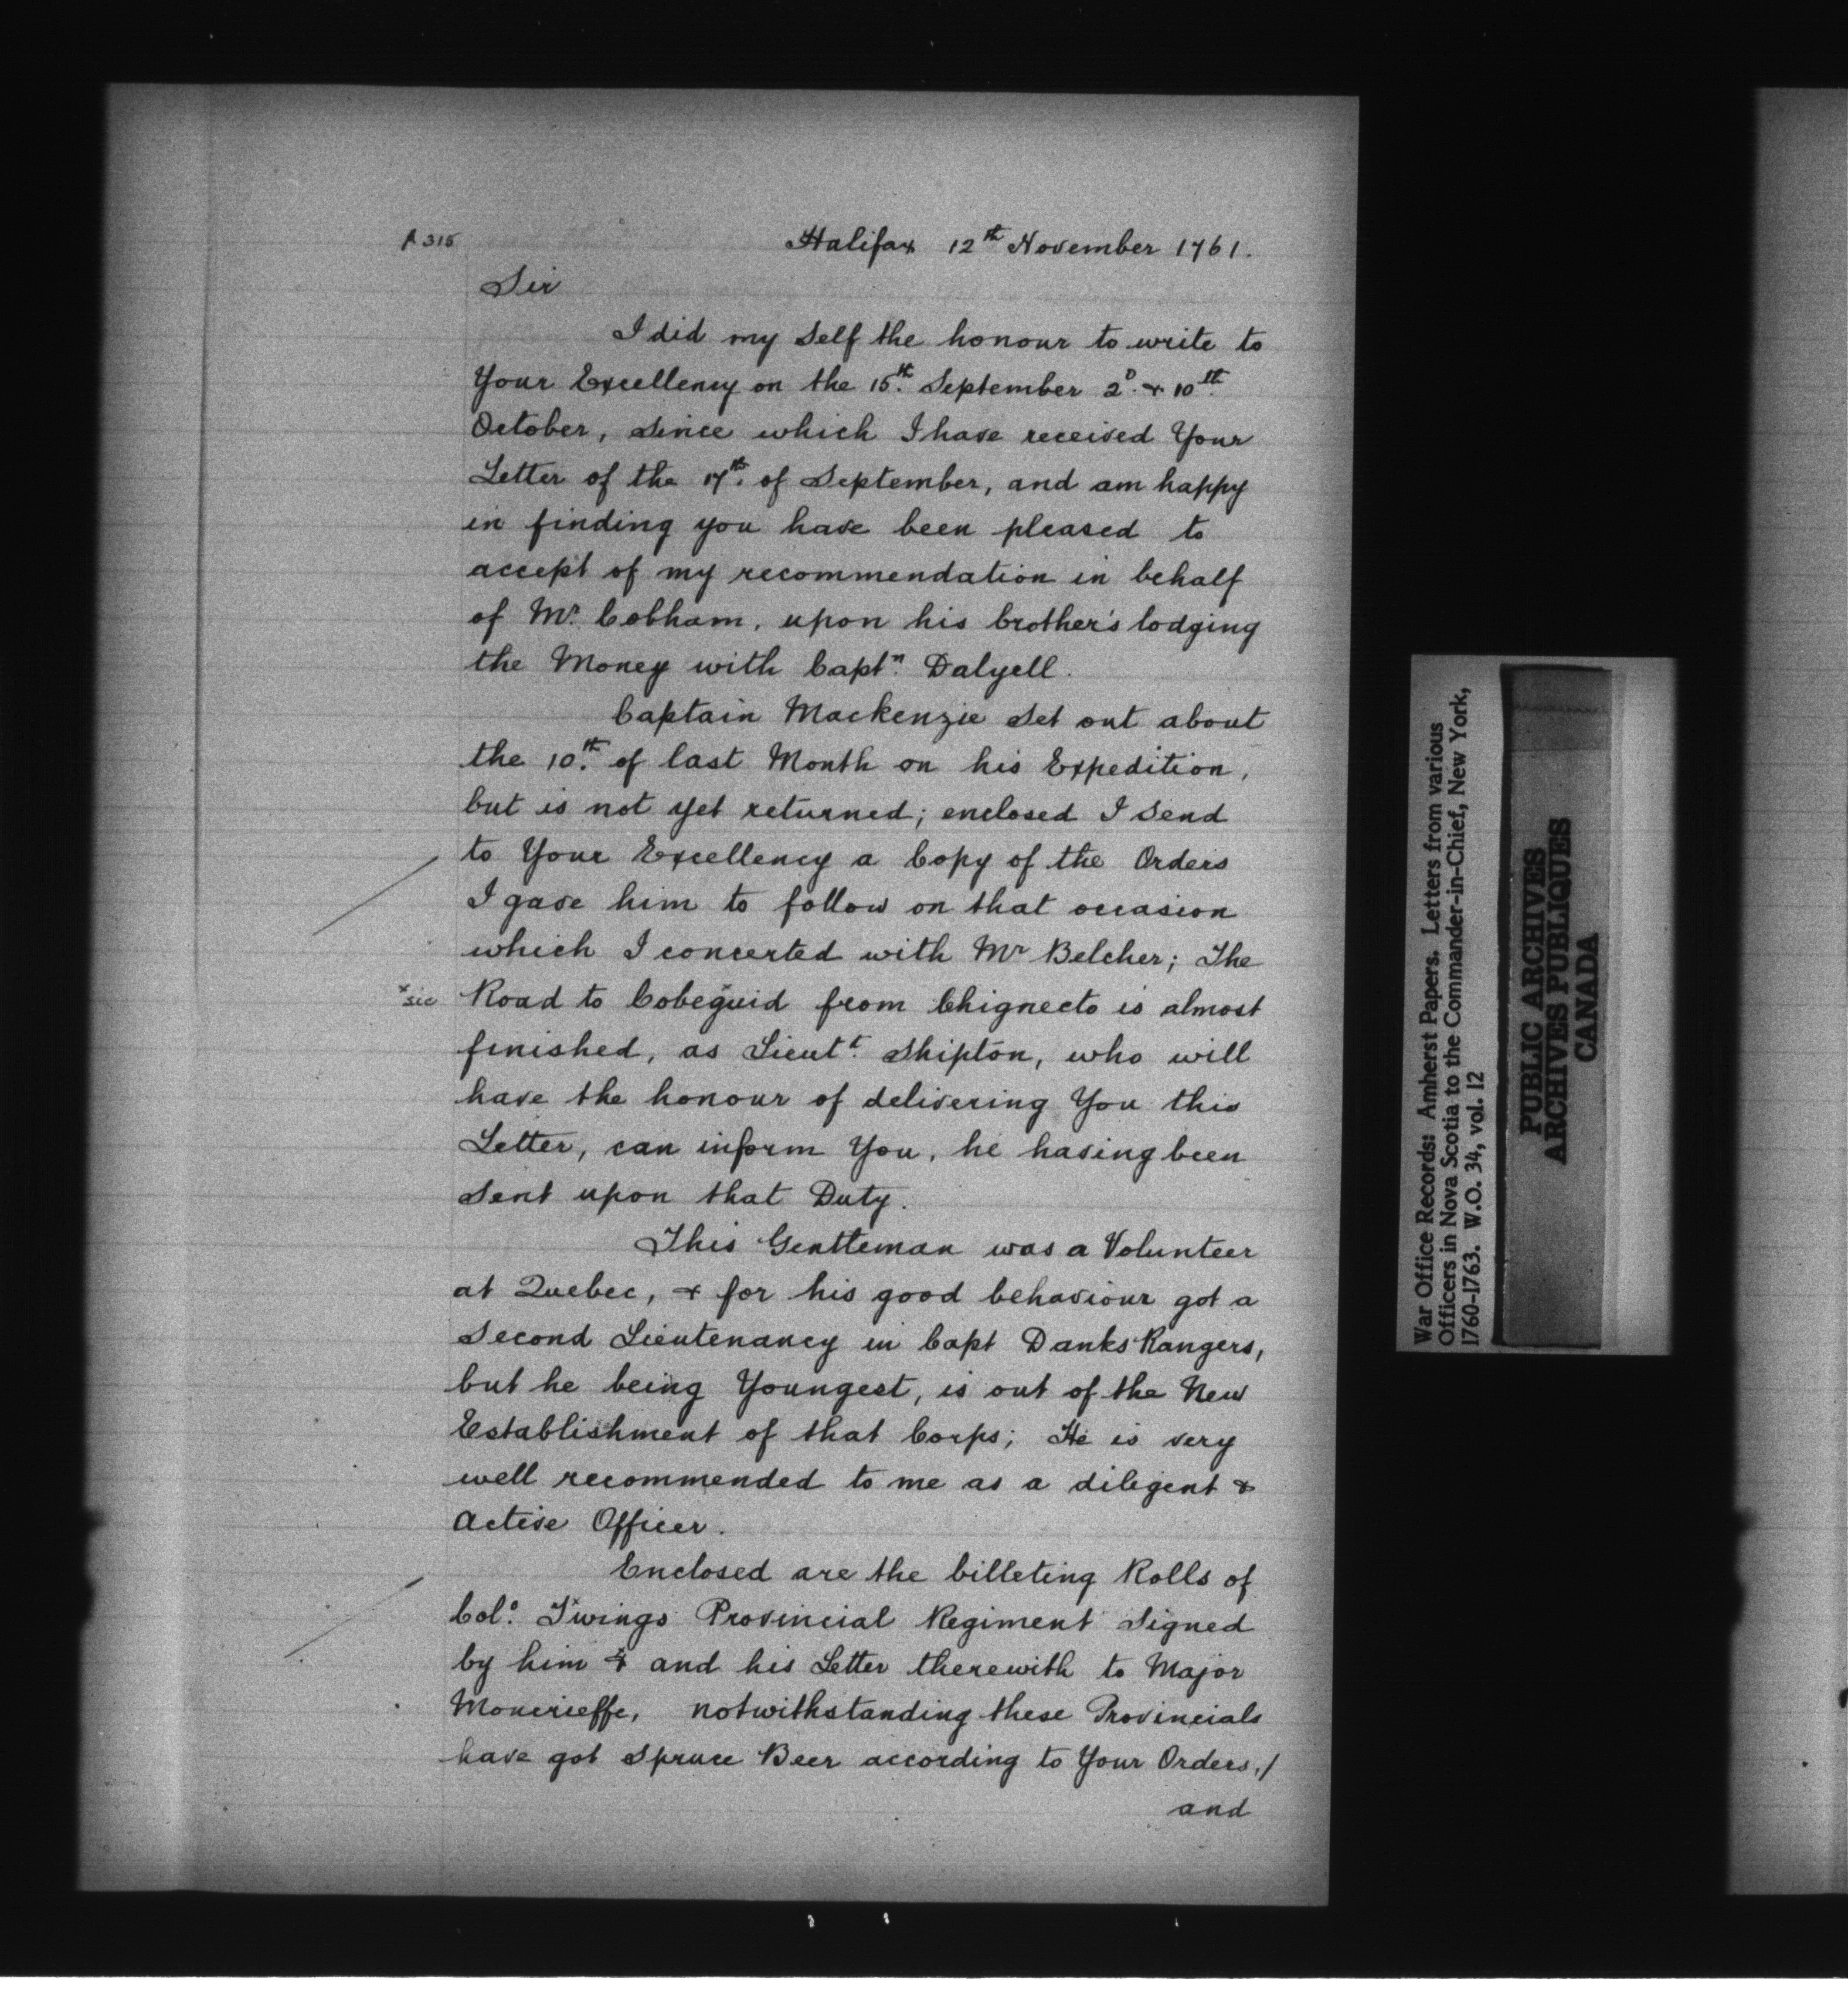 A 315
Halifax 12th November 1761.
Sir
I did my Self the honour to write to
Your Excellency on the 15th. September 2D. & 10th.
October, Since which I have received Your
Letter of the 17th. of September, and am happy
in finding you have been pleased to
accept of my recommendation in behalf
of Mr. Cobham, upon his brother's lodging
the Money with Captn. Dalyell.
Captain Mackenzie Set out about
the 10th. of last Month on his Expedition,
but is not yet returned; enclosed I Send
to Your Excellency a Copy of the Orders
I gave him to follow on that occasion
which I concerted with Mr Belcher; The
*sic Road to Cobeguid from Chignecto is almost
finished, as Lieutt. Shipton, who will
have the honour of delivering You this
Letter, can inform You, he having been
Sent upon that Duty.
This Gentleman was a Volunteer
at Quebec, & for his good behaviour got a
Second Lieutenancy in Capt Danks Rangers,
but he being Youngest, is out of the New
Establishment of that Corps; He is very
well recommended to me as a diligent &
active Officer.
Enclosed are the billeting Rolls of
Colo. Twings Provincial Regiment Signed
by him & and his Letter therewith to Major
Moncrieffe, notwithstanding these Provincials
have got Spruce Beer according to Your Orders,/
and
War Office Records: Amherst Papers. Letters from various
Officers in Nova Scotia to the Commander-in-Chief, New York,
1760-1763. W.O. 34, vol. 12
PUBLIC ARCHIVES
ARCHIVES PUBLIQUES
CANADA